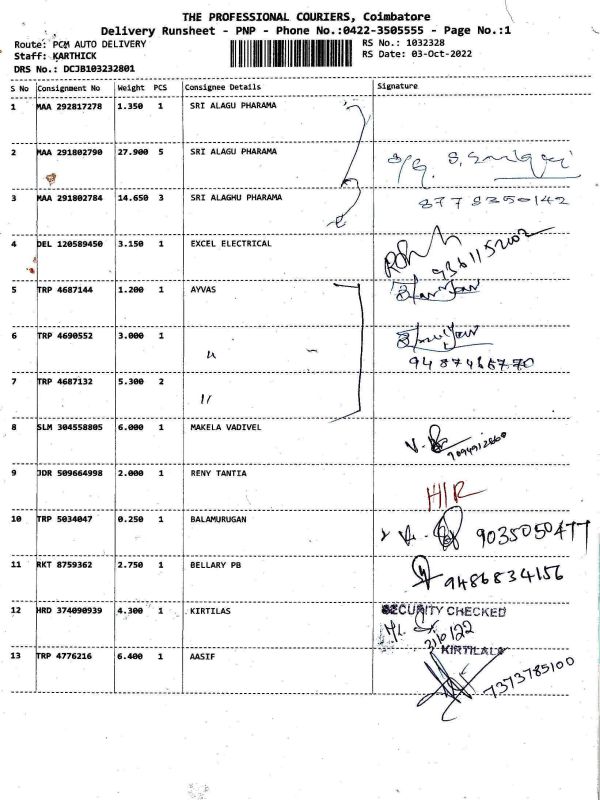 THE PROFESSIONAL COURIERS, Coimbatore
Delivery Runsheet - PNP - Phone No.:0422-3505555 - Page No.:1
Route: PCM AUTO DELIVERY
RS No.: 1032328
Staff: KARTHICK
RS Date: 03-Oct-2022
DRS No.: DCJB103232801
S No Consignment No Weight PCS Consignee Details Signature
1 MAA 292817278 1.350 1 SRI ALAGU PHARAMA
2 MAA 291802790 27.900 5 SRI ALAGU PHARAMA
3 MAA 291802784 14.650 3 SRI ALAGHU PHARAMA
8778350142
4 DEL 120589450 3.150 1 EXCEL ELECTRICAL
5 TRP 4687144 1.200 1 AYVAS
6 TRP 4690552 3.000 1 〃
7 TRP 4687132 5.300 2 〃
8 SLM 304558805 6.000 1 MAKELA VADIVEL
9 JDR 509664998 2.000 1 RENY TANTIA
H/R
10 TRP 5034047 0.250 1 BALAMURUGAN
9035050477
11 RKT 8759362 2.750 1 BELLARY PB
9486834156
12 HRD 374090939 4.300 1 KIRTILAS
SECURITY CHECKED
KIRTILALS
13 TRP 4776216 6.400 1 AASIF
7373785100